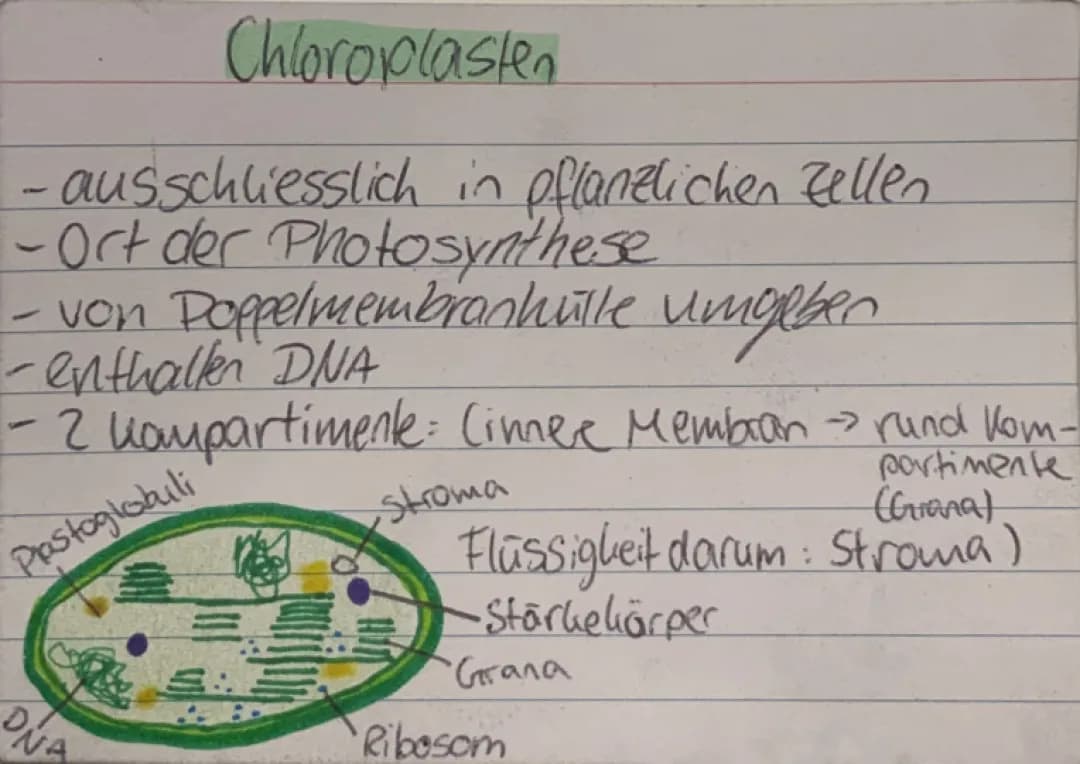 Chloroplasten
- ausschliesslich in pflanzlichen Zellen
- Ort der Photosynthese
- von Doppelmembranhülle umgeben
- enthalten DNA
- 2 Kompartimente: (innere Membran → rund Kom-
partimente
(Grana)
Flüssigkeit darum: Stroma)
Plastoglobuli
Stroma
Stärkekörper
Grana
Ribosom
DNA